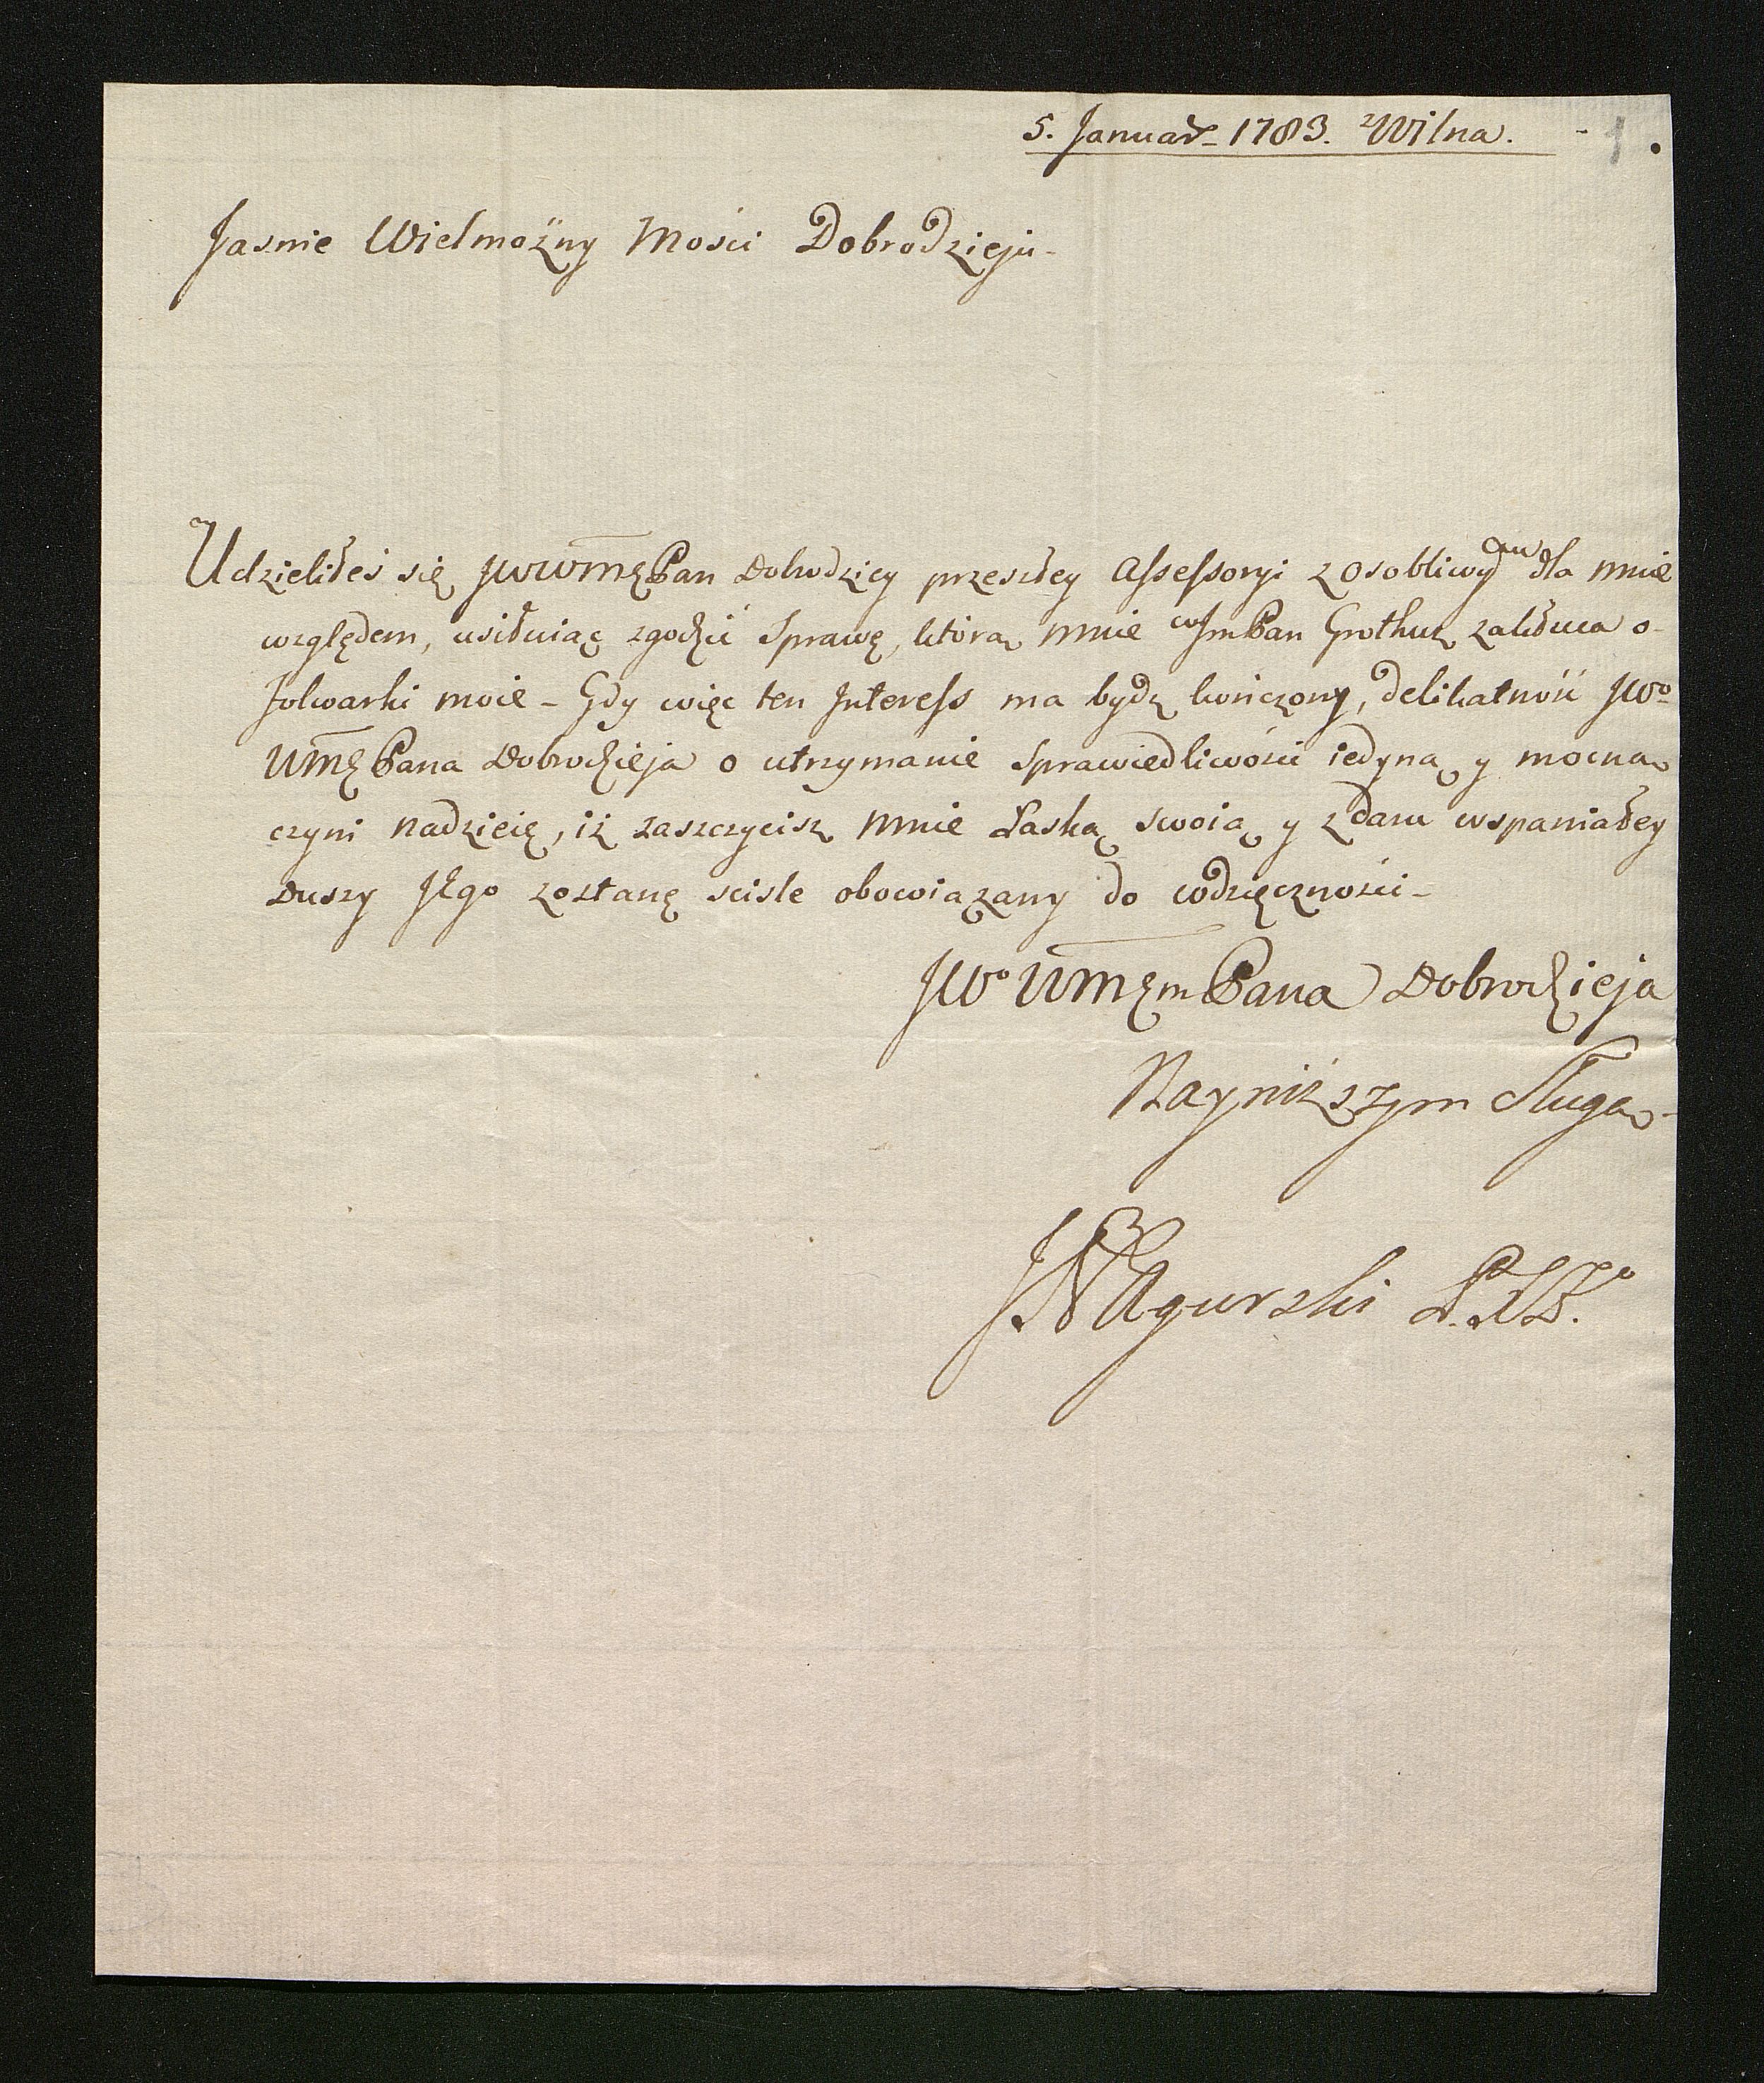 5. Januar 1783. z Wilna. - 1.
Jasnie Wielmożny Mości Dobrodzieju -
Udzieliłeś się JWWMę Pan Dobrodziey przeszłey Assessoryi z osobliwym dla mnie
względem, usiłuiąc zgodzić Sprawę, którą mnie WJm Pan Grothuz zakłuca o
folwarki moie - Gdy więc ten Interess ma bydz kończony, delikatność JWo
WMę Pana Dobrodzieja o utrzymanie Sprawiedliwości iedyną y mocną
czyni nadzieię, iż zaszczycisz mnie Łaską swoią y z daru wspaniałey
Duszy JEgo zostanę sciśle obowiązany do wdzięczności -
JWo WMęm Pana Dobrodzieja
Nayniższym Sługą -
JN Agurski